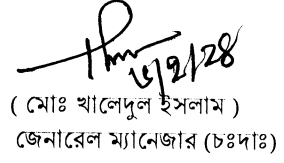 ( মোঃ খালেদুল ইসলাম )
জেনারেল ম্যানেজার (চঃদাঃ)